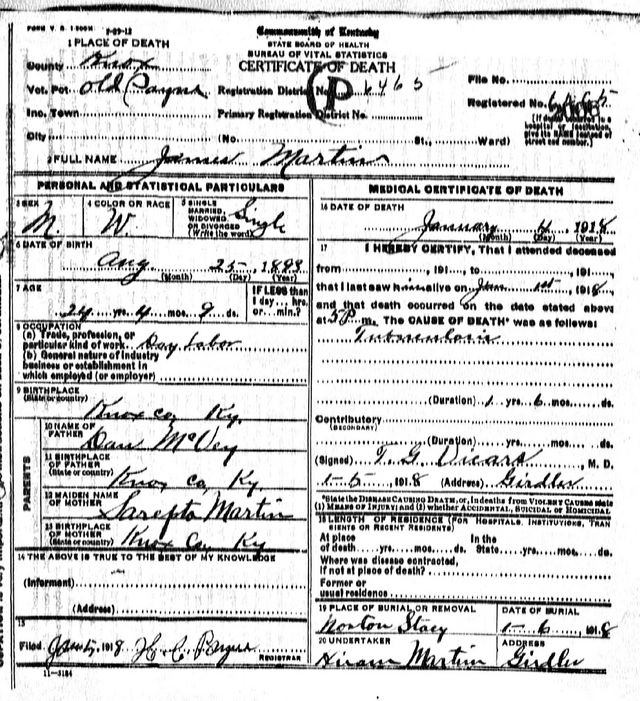 FORM V. S. 1 500M 1-29-12
Commonwealth of Kentucky
STATE BOARD OF HEALTH
BUREAU OF VITAL STATISTICS
CERTIFICATE OF DEATH
1 PLACE OF DEATH
County Knox
Vot. Pct Old Payne Registration District No. P 6465
File No.
Registered No.
Inc. Town Primary Registration District No.
[If death occurred in a hospital or institution, give its NAME instead of street and number.]
City (No. St., Ward)
2 FULL NAME James Martin
PERSONAL AND STATISTICAL PARTICULARS
3 SEX M.
4 COLOR OR RACE W.
5 SINGLE MARRIED, WIDOWED OR DIVORCED (Write the word) Single
6 DATE OF BIRTH
Aug 25, 1893
(Month) (Day) (Year)
7 AGE
24 yrs. 4 mos. 9 ds.
IF LESS than 1 day... hrs. or... min.?
8 OCCUPATION
(a) Trade, profession, or particular kind of work Day Labor
(b) General nature of industry business or establishment in which employed (or employer)
9 BIRTHPLACE
(State or country)
Knox co, Ky.
PARENTS
10 NAME OF FATHER
Dan McVey
11 BIRTHPLACE OF FATHER
(State or country)
Knox Co, Ky
12 MAIDEN NAME OF MOTHER
Sarepta Martin
13 BIRTHPLACE OF MOTHER
(State or country) Knox Co, Ky
14 THE ABOVE IS TRUE TO THE BEST OF MY KNOWLEDGE
(Informent)
(Address)
15
Filed, 1918
REGISTRAR
11-3184
MEDICAL CERTIFICATE OF DEATH
16 DATE OF DEATH
January 4, 1918
(Month) (Day) (Year)
17 I HEREBY CERTIFY, That I attended deceased
from, 191..., to, 191...,
that I last saw him alive on Jan 1st, 1918,
and that death occurred on the date stated above
at 5 P. m. The CAUSE OF DEATH* was as follows:
Tuberculosis
(Duration) 1 yrs. 6 mos. ds.
Contributory
(SECONDARY)
(Duration) yrs. mos. ds.
(Signed) T. G. Vicars, M. D.
1-5, 1918 (Address) Girdler
*State the DISEASE CAUSING DEATH, or, in deaths from VIOLENT CAUSES state
(1) MEANS OF INJURY; and (2) whether ACCIDENTAL, SUICIDAL or HOMICIDAL
18 LENGTH OF RESIDENCE (FOR HOSPITALS, INSTITUTIONS, TRANSIENTS OR RECENT RESIDENTS)
At place of death yrs. mos. ds. In the State yrs. mos. ds.
Where was disease contracted,
If not at place of death?
Former or
usual residence
19 PLACE OF BURIAL OR REMOVAL
Norton Stacy
DATE OF BURIAL
1-6, 1918
20 UNDERTAKER
Hiram Martin
ADDRESS
Girdler